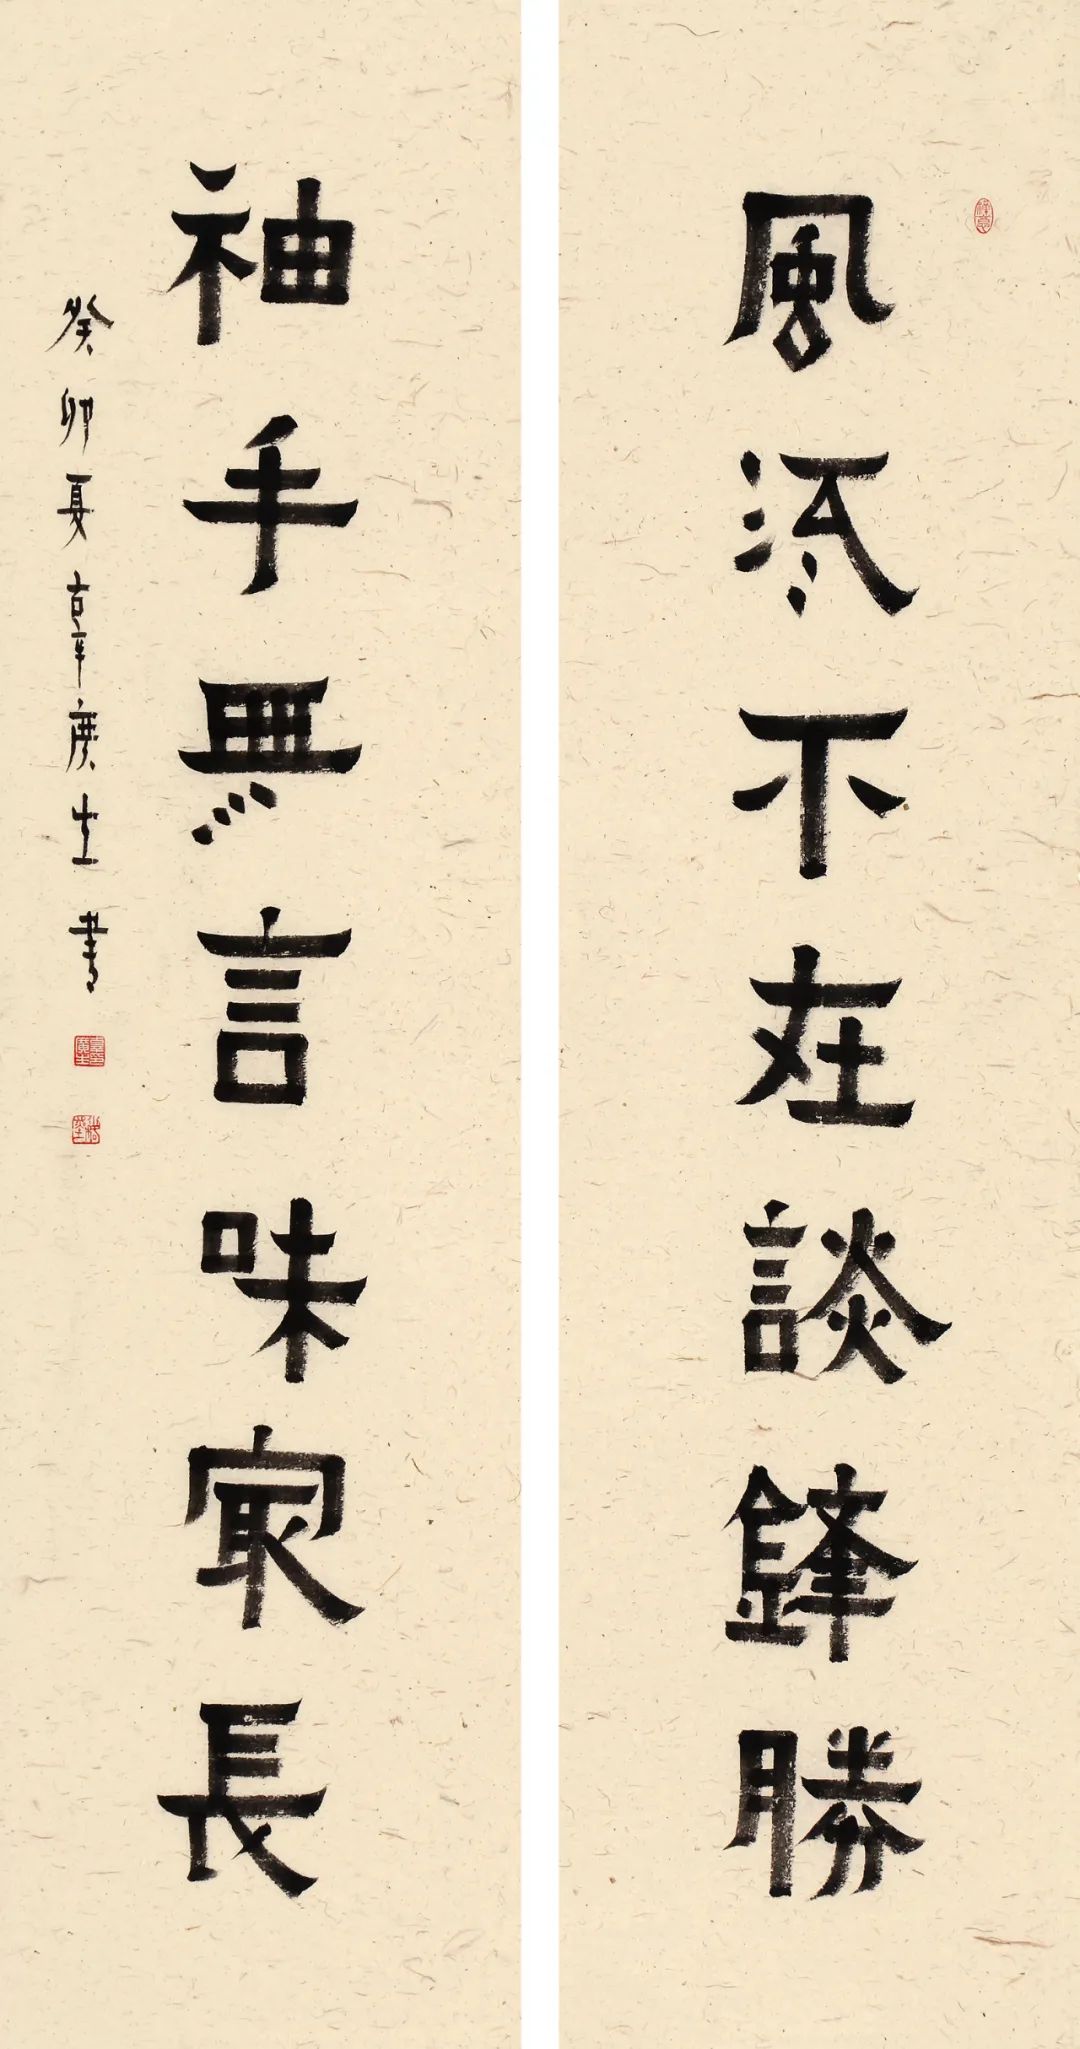 風流不在談鋒勝
袖手無言味冣長
癸卯夏古辛庚生書